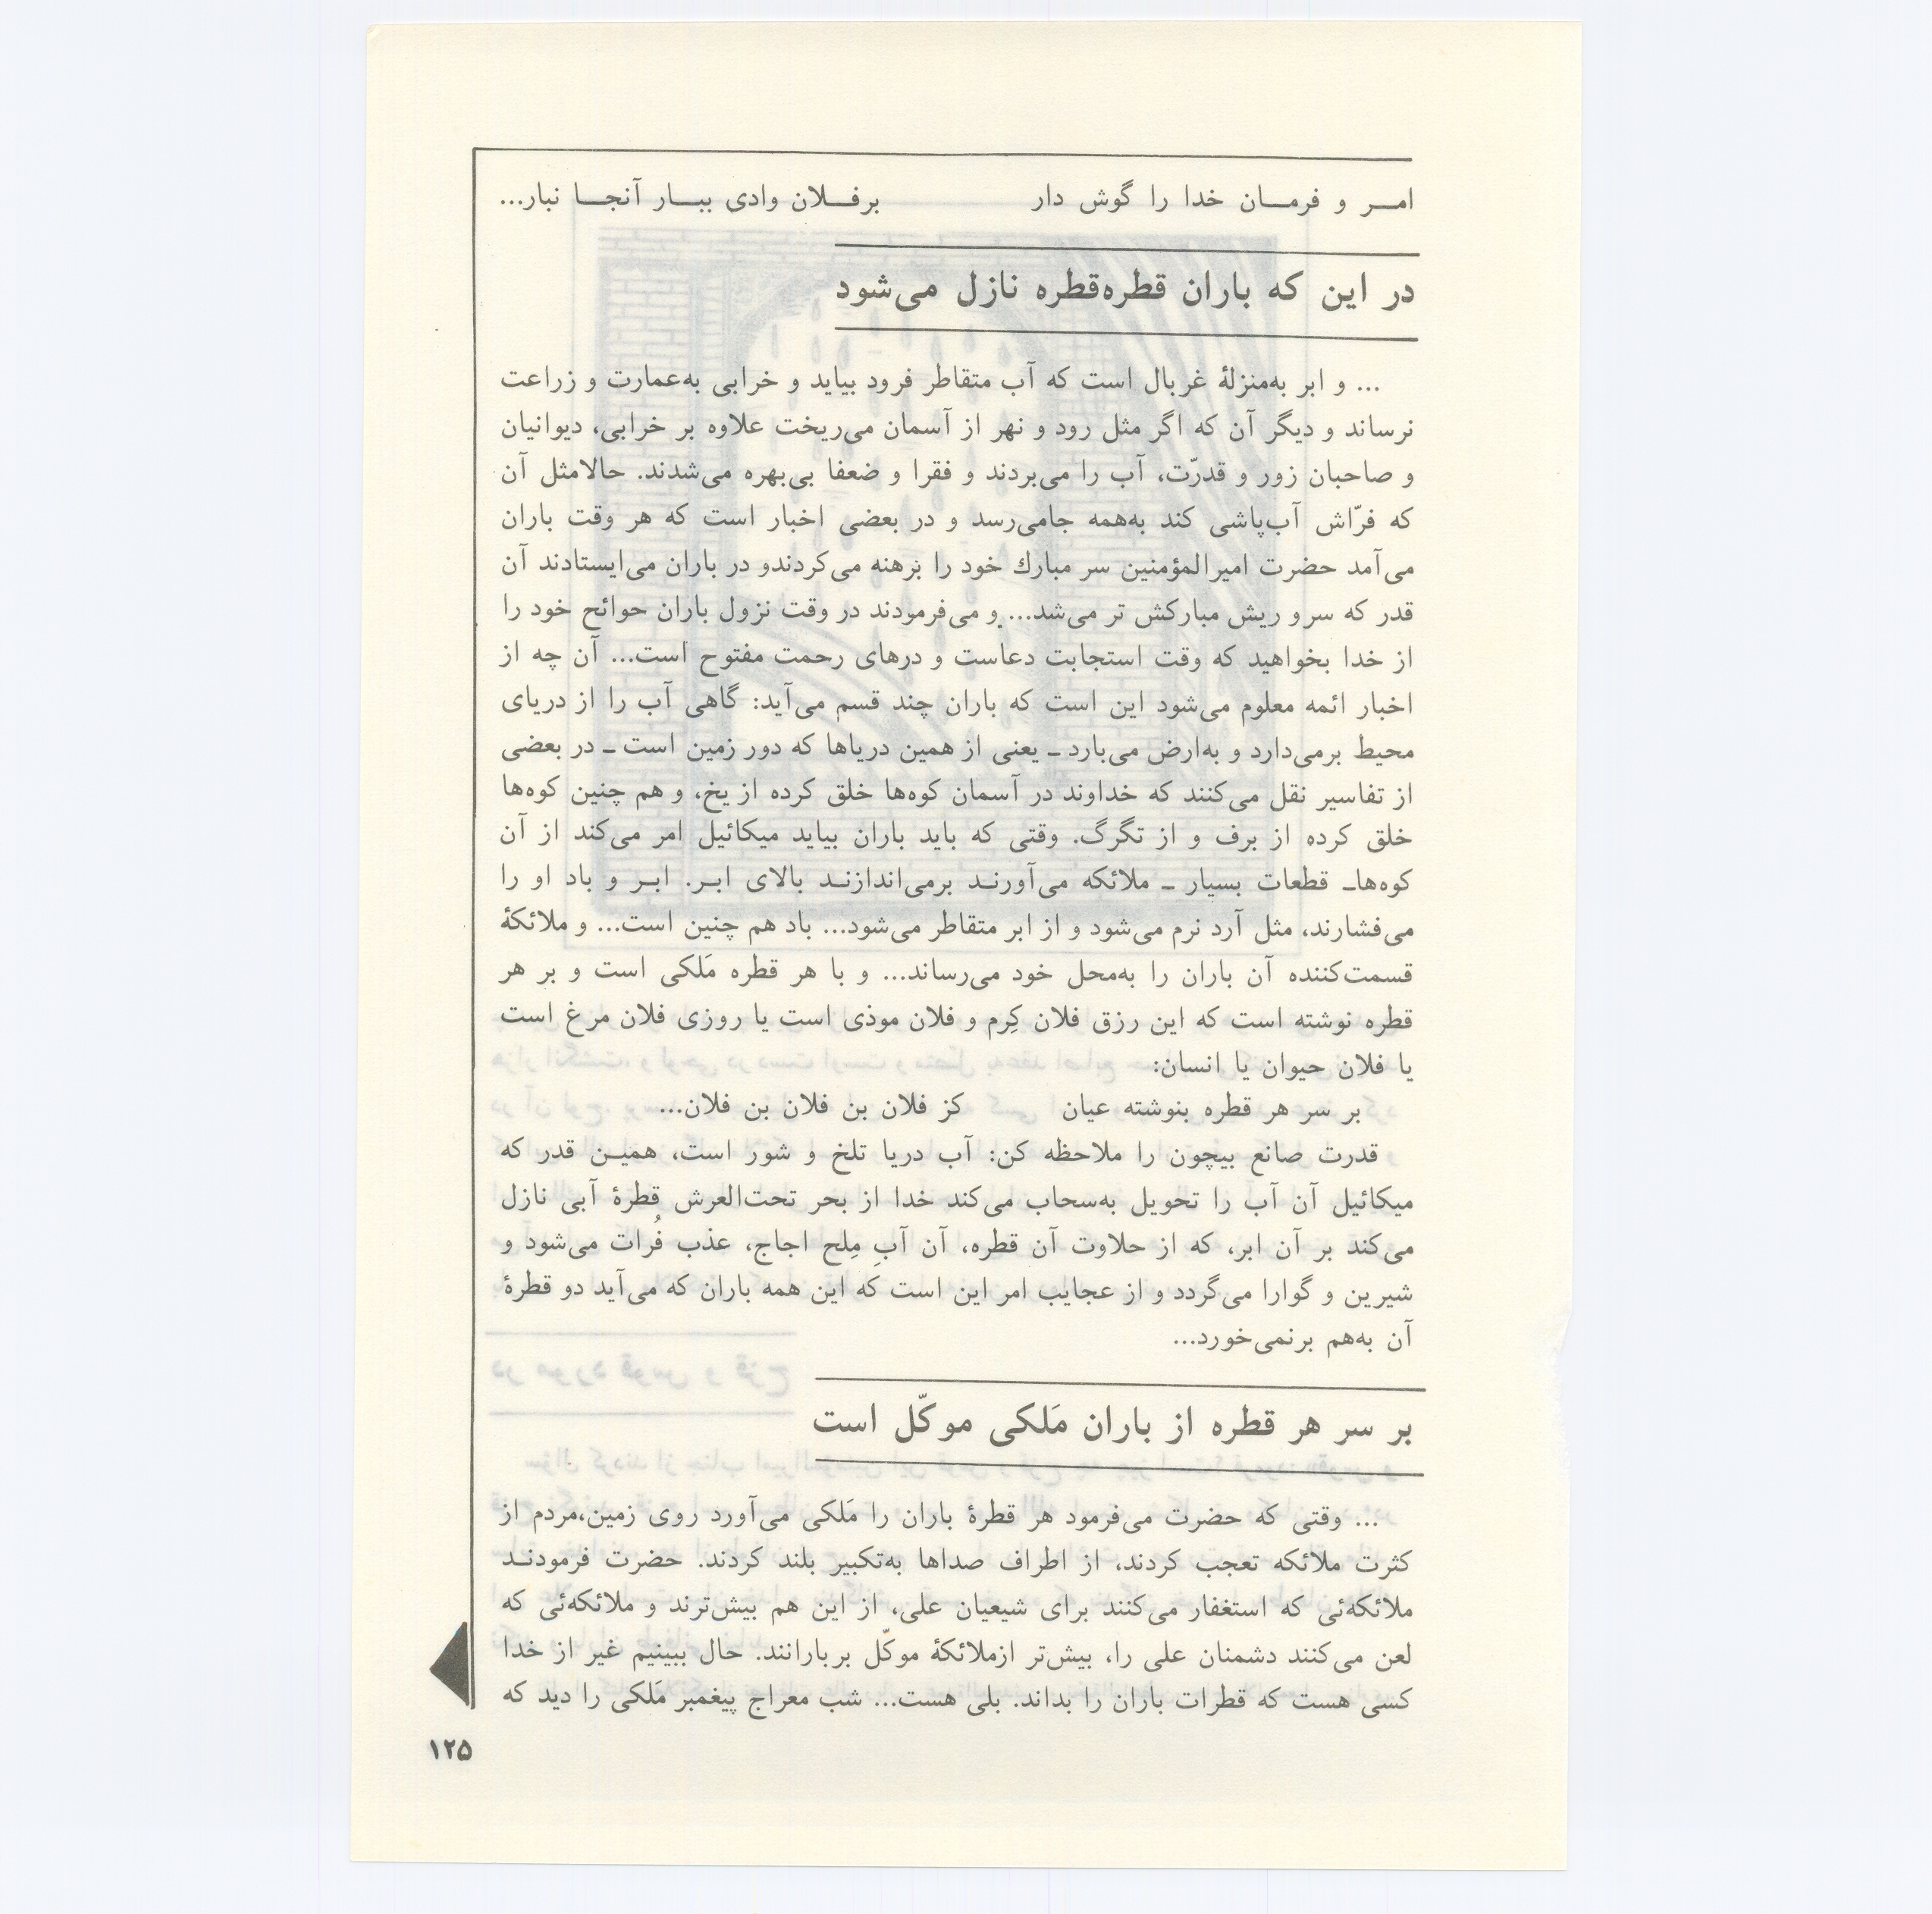 امـــر و فرمـــان خدا را گوش دار برفـــلان وادی ببـــار آنجـــا نبار...
در این که باران قطره‌قطره نازل می‌شود
... و ابر به‌منزلهٔ غربال است که آب متقاطر فرود بیاید و خرابی به‌عمارت و زراعت
نرساند و دیگر آن که اگر مثل رود و نهر از آسمان می‌ریخت علاوه بر خرابی، دیوانیان
و صاحبان زور و قدرّت، آب را می‌بردند و فقرا و ضعفا بی‌بهره می‌شدند. حالامثل آن
که فرّاش آب‌پاشی کند به‌همه جامی‌رسد و در بعضی اخبار است که هر وقت باران
می‌آمد حضرت امیرالمؤمنین سر مبارك خود را برهنه می‌کردندو در باران می‌ایستادند آن
قدر که سرو ریش مبارکش تر می‌شد... و می‌فرمودند در وقت نزول باران حوائج خود را
از خدا بخواهید که وقت استجابت دعاست و درهای رحمت مفتوح است... آن چه از
اخبار ائمه معلوم می‌شود این است که باران چند قسم می‌آید: گاهی آب را از دریای
محیط برمی‌دارد و به‌ارض می‌بارد ـ یعنی از همین دریاها که دور زمین است ـ در بعضی
از تفاسیر نقل می‌کنند که خداوند در آسمان کوه‌ها خلق کرده از یخ، و هم چنین کوه‌ها
خلق کرده از برف و از تگرگ. وقتی که باید باران بیاید میکائیل امر می‌کند از آن
کوه‌هاـ قطعات بسیار ـ ملائکه می‌آورنـد برمی‌اندازنـد بالای ابـر. ابـر و باد او را
می‌فشارند، مثل آرد نرم می‌شود و از ابر متقاطر می‌شود... باد هم چنین است... و ملائکهٔ
قسمت‌کننده آن باران را به‌محل خود می‌رساند... و با هر قطره مَلکی است و بر هر
قطره نوشته است که این رزق فلان کِرم و فلان موذی است یا روزی فلان مرغ است
یا فلان حیوان یا انسان:
بر سر هر قطره بنوشته عیان کز فلان بن فلان بن فلان...
قدرت صانع بیچون را ملاحظه کن: آب دریا تلخ و شور است، همیـن قدر که
میکائیل آن آب را تحویل به‌سحاب می‌کند خدا از بحر تحت‌العرش قطرهٔ آبی نازل
می‌کند بر آن ابر، که از حلاوت آن قطره، آن آبِ مِلح اجاج، عذب فُرات می‌شود و
شیرین و گوارا می‌گردد و از عجایب امر این است که این همه باران که می‌آید دو قطرهٔ
آن به‌هم برنمی‌خورد...
بر سر هر قطره از باران مَلکی موکّل است
... وقتی که حضرت می‌فرمود هر قطرهٔ باران را مَلکی می‌آورد روی زمین،مردم از
کثرت ملائکه تعجب کردند، از اطراف صداها به‌تکبیر بلند کردند. حضرت فرمودنـد
ملائکه‌ئی که استغفار می‌کنند برای شیعیان علی، از این هم بیش‌ترند و ملائکه‌ئی که
لعن می‌کنند دشمنان علی را، بیش‌تر ازملائکهٔ موکّل بربارانند. حال ببینیم غیر از خدا
کسی هست که قطرات باران را بداند. بلی هست... شب معراج پیغمبر مَلکی را دید که
۱۲۵